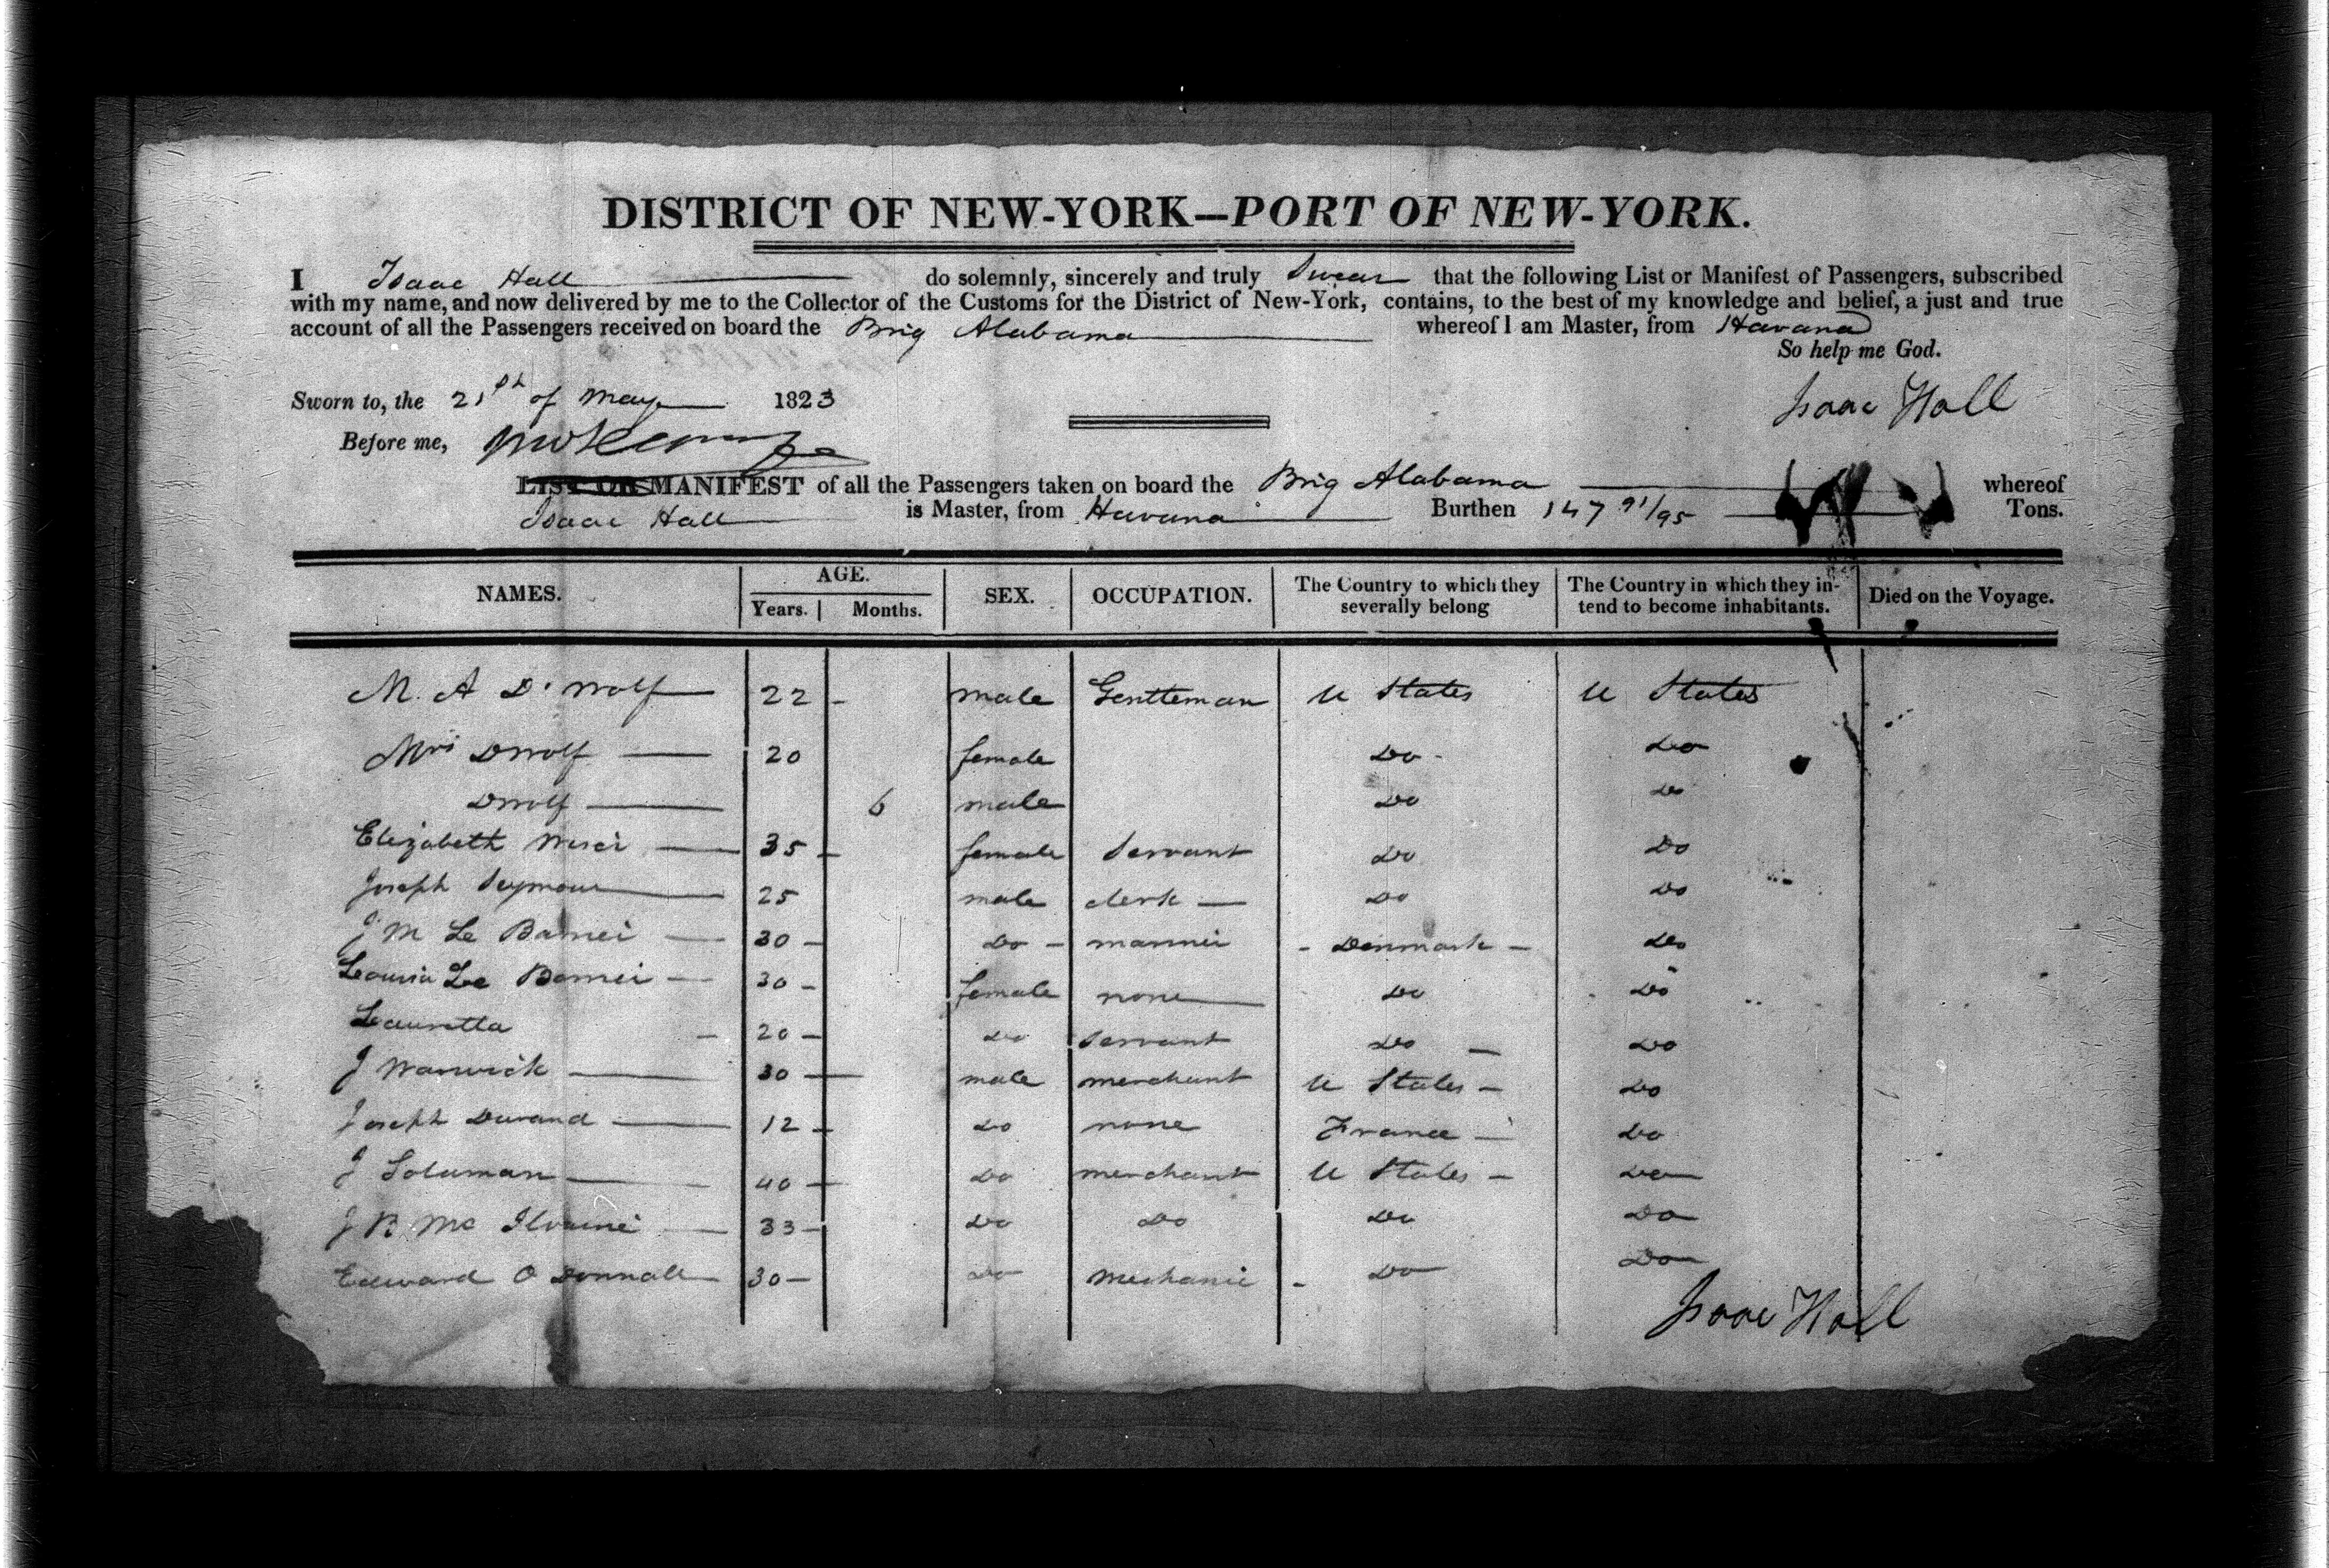 DISTRICT OF NEW-YORK—PORT OF NEW-YORK.
I Isaac Hall do solemnly, sincerely and truly Swear that the following List or Manifest of Passengers, subscribed
with my name, and now delivered by me to the Collector of the Customs for the District of New-York, contains, to the best of my knowledge and belief, a just and true
account of all the Passengers received on board the Brig Alabama whereof I am Master, from Havana
So help me God.
Sworn to, the 21st of May 1823
Isaac Hall
Before me,
LIST OR MANIFEST of all the Passengers taken on board the Brig Alabama whereof
Isaac Hall is Master, from Havana Burthen 147 91/95 Tons.
NAMES. AGE. Years. Months. SEX. OCCUPATION. The Country to which they severally belong The Country in which they intend to become inhabitants. Died on the Voyage.
M. A D'Wolf 22 - male Gentleman U States U States
Mrs DWolf 20 female Do - Do
DWolf 6 male Do Do
Elizabeth 35 - female Servant Do Do
Joseph Seymour 25 male clerk Do Do
J M Le 30 - Do - - Denmark - Do
Le 30 - female none Do Do
Lauretta - 20 - Do Servant Do - Do
J Warwick 30 - male merchant U States - Do
Joseph Durand 12 - Do none France - Do
J Soluman 40 - Do merchant U States - Do
J B Mc Ilvaine 33 - Do Do Do Do
Edward O Donnall 30 - Do mechanic - Do Do
Isaac Hall